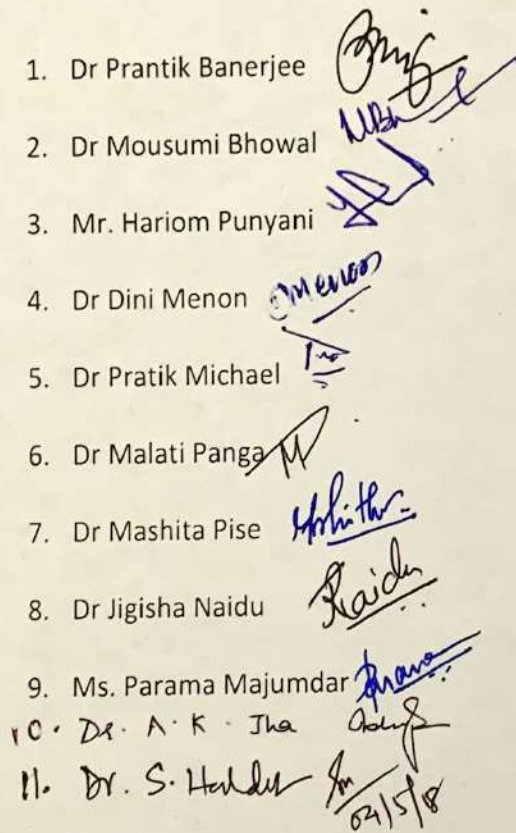 1. Dr Prantik Banerjee
2. Dr Mousumi Bhowal MBh
3. Mr. Hariom Punyani
4. Dr Dini Menon Menon
5. Dr Pratik Michael
6. Dr Malati Panga M
7. Dr Mashita Pise
8. Dr Jigisha Naidu Naidu
9. Ms. Parama Majumdar
10. Dr. A. K. Jha
11. Dr. S. Halder
04/5/18